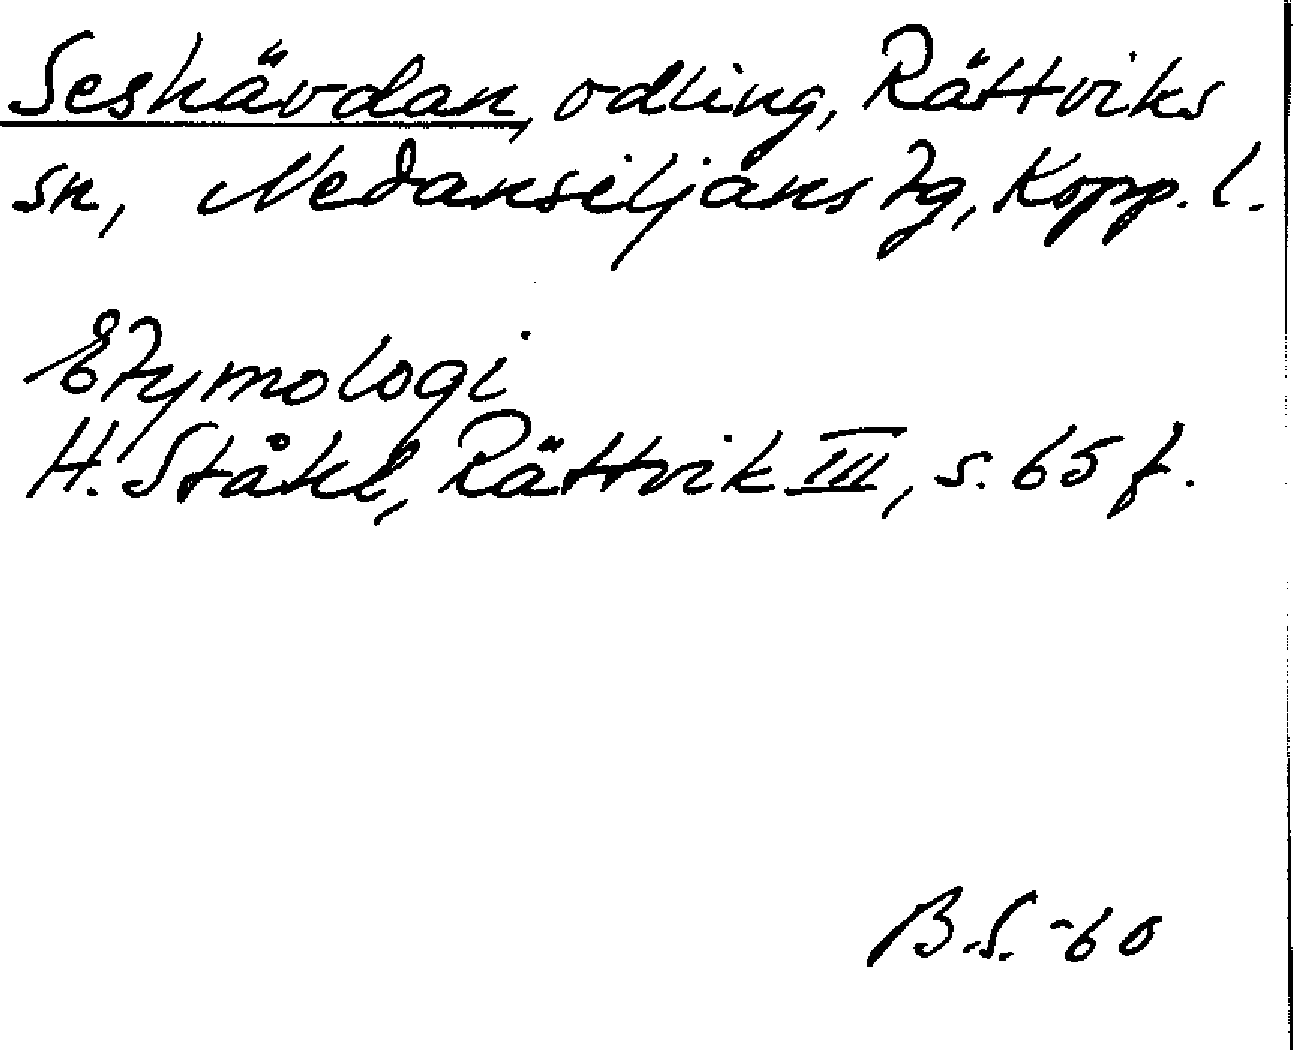 Seshävdan, odling, Rättviks
sn, Nedansiljans tg, Kopp. l.
Etymologi
H. Ståhl, Rättvik III, s. 65 f.
B.S. -60